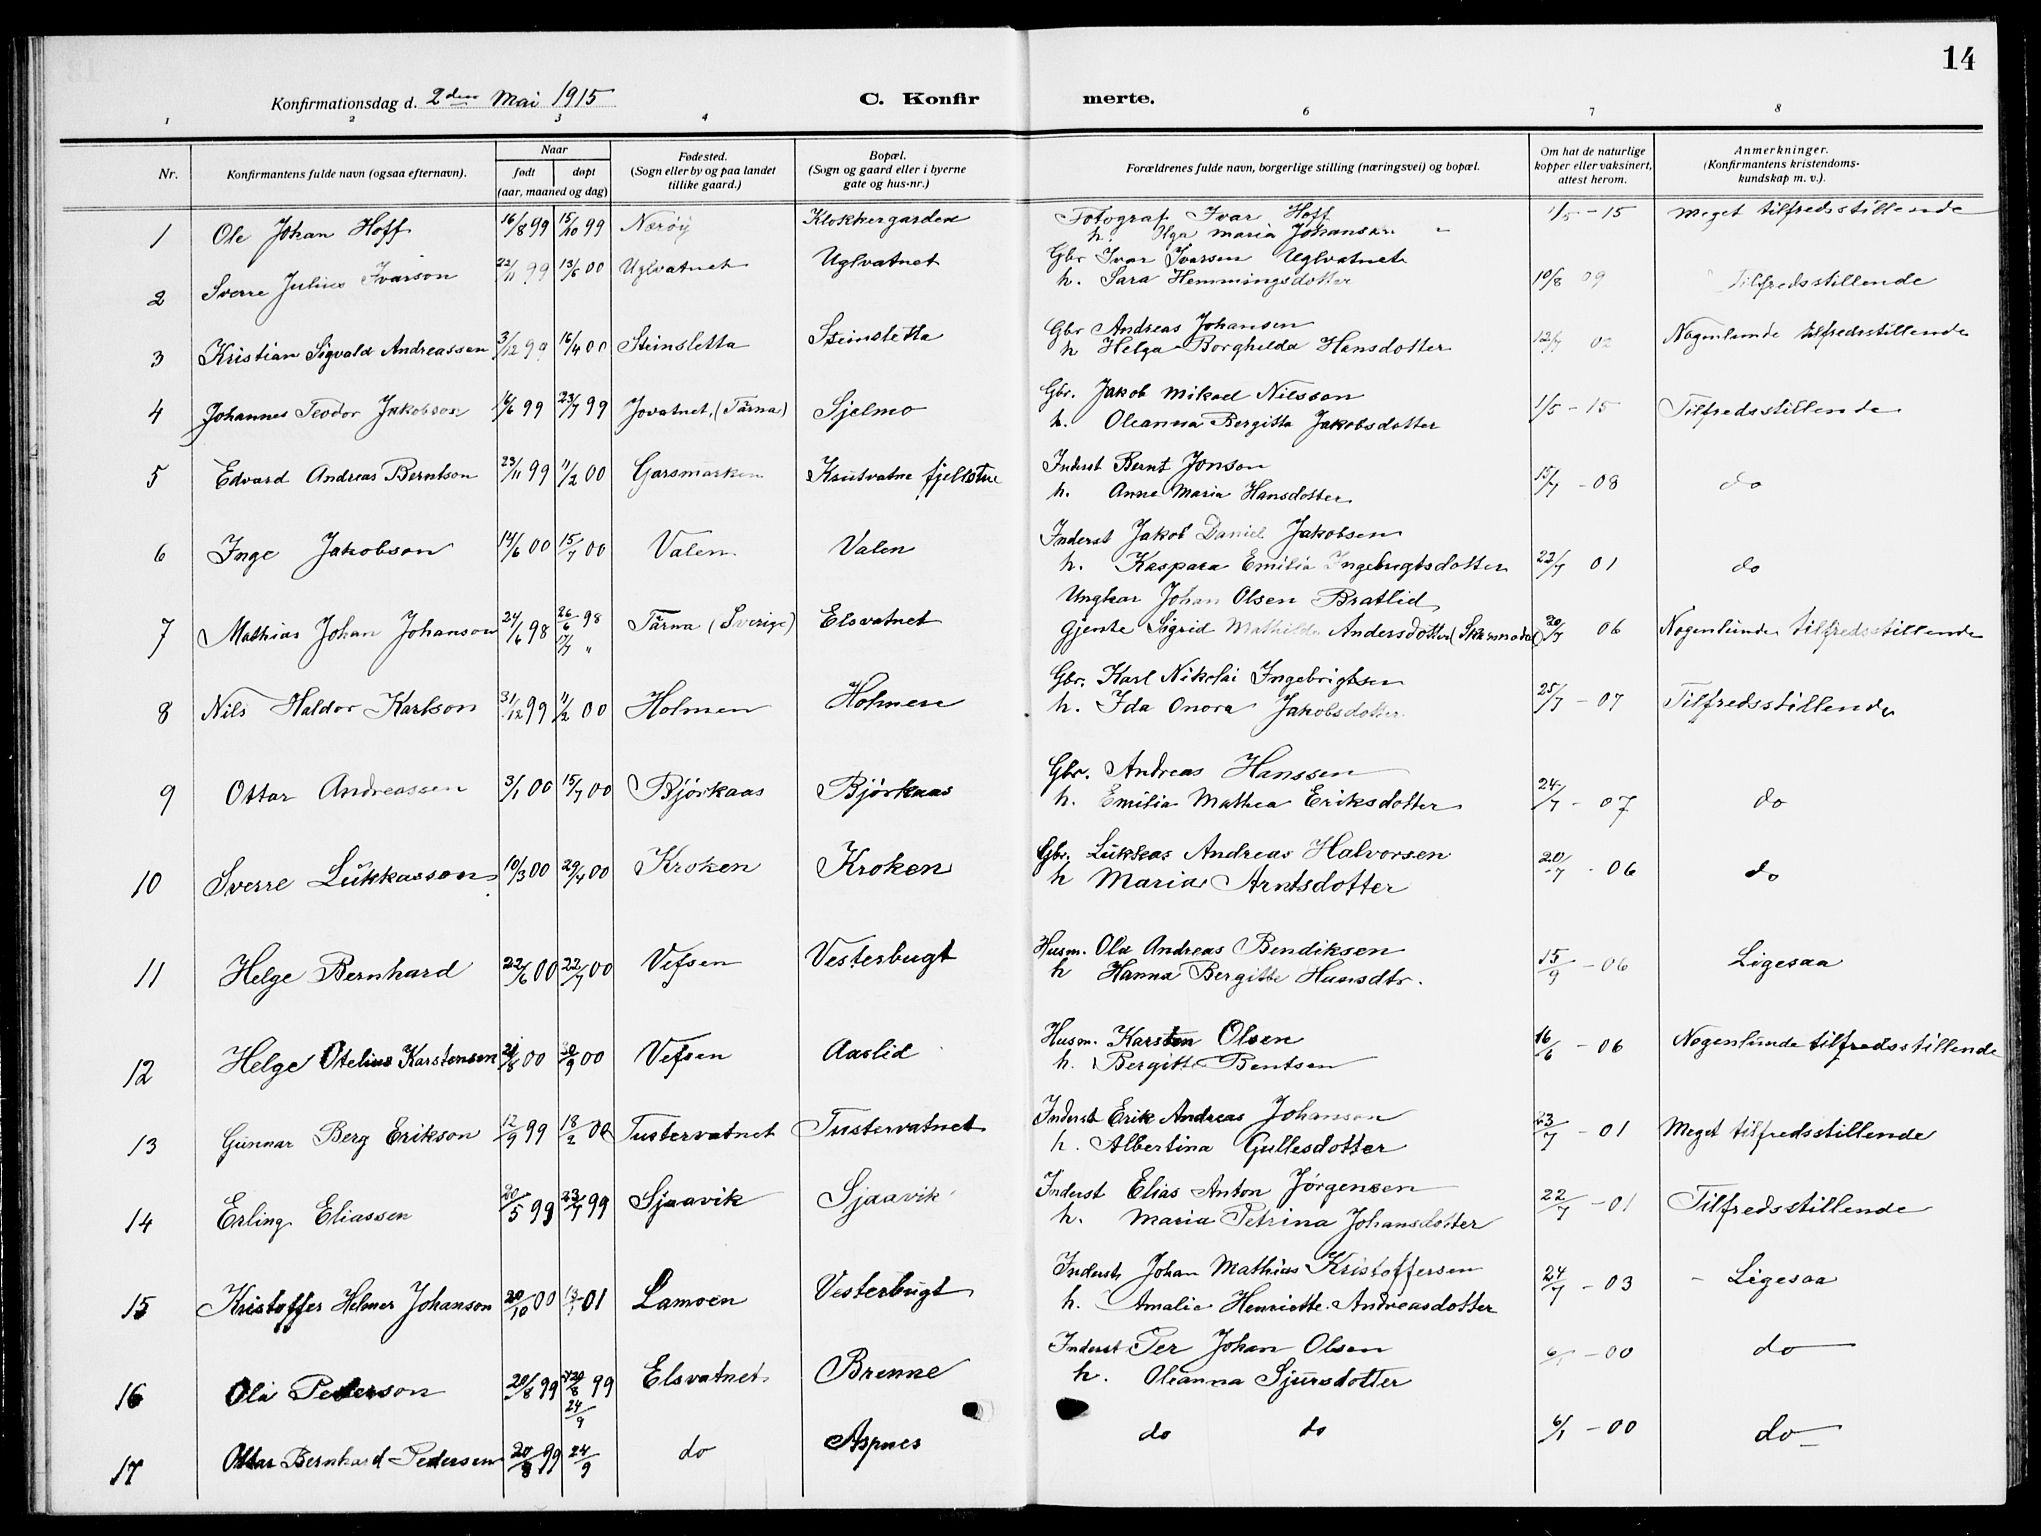 14
Konfirmationsdag d. 2den Mai 1915 C. Konfir merte.
1 2 3 4 6 7 8
Nr. Konfirmantens fulde navn (ogsaa efternavn). Naar født døpt (aar, maaned og dag) Fødested. (Sogn eller by og paa landet tillike gaard.) Bopæl. (Sogn og gaard eller i byerne gate og hus-nr.) Forældrenes fulde navn, borgerlige stilling (næringsvei) og bopæl. Om hat de naturlige kopper eller vaksinert, attest herom. Anmerkninger. (Konfirmantens kristendoms- kundskap m. v.).
1 Ole Johan Hoff 16/8 99 15/10 99 Nærøy Klokkergarden Fotograf Ivar Hoff 1/5 - 15 Meget tilfredsstillende
h. Olga Maria Johansen
2 Sverre Julius Ivarson 22/11 99 13/6 00 Uglvatnet Uglvatnet Gbr Ivar Ivarsen Uglvatnet
h. Sara Hemmingsdotter 10/8 09 Tilfredsstillende
3 Kristian Sigvald Andreassen 3/12 99 16/4 00 Steinsletta Steinsletta Gbr Andreas Johansen
h Helga Borghilda Hansdotter 12/7 02 Nogenlunde tilfredsstillende
4 Johannes Teodor Jakobson 16/6 99 23/7 99 Jovatnet, (Tärna) Sjelmo Gbr. Jakob Mikael Nilsson 1/5 - 15 Tilfredsstillende
h. Oleanna Bergitta Jakobsdotter
5 Edvard Andreas Berntson 23/11 99 11/2 00 Garsmarken Knutvatne fjellstue Inderst Bernt Jonson
h. Anne Maria Hansdotter 15/7 - 08 do
6 Inge Jakobson 14/6 00 15/7 00 Valen Valen Inderst Jakob Daniel Jakobsen
h. Kaspara Emilia Ingebrigtsdotter 22/7 01 do
7 Mathias Johan Johanson 24/6 98 26/6 98 17/7 " Tärna (Sverige) Elsvatnet Ungkar Johan Olsen Bratlid
Gjente Sigrid Mathilda Andersdotter 20/7 06 Nogenlunde tilfredsstillende
8 Nils Haldor Karlson 31/12 99 11/2 00 Holmen Holmen Gbr. Karl Nikolai Ingebrigtsen
h. Ida Onora Jakobsdotter 25/7 - 07 Tilfredsstillende
9 Ottar Andreassen 3/1 00 15/7 00 Bjørkaas Bjørkaas Gbr. Andreas Hanssen
h. Emilia Mathea Eriksdotter 24/7 - 07 do
10 Sverre Lukkasson 10/3 00 29/4 00 Kroken Kroken Gbr. Lukkas Andreas Halvorsen
h Maria Arntsdotter 20/7 - 06 do
11 Helge Bernhard 22/6 00 22/7 00 Vefsen Vesterbugt Husm. Ola Andreas Bendiksen
h Hanna Bergitte Hansdtr. 15/9 - 06 Ligesaa
12 Helge Otelius Karstensen 21/8 00 30/9 00 Vefsen Aaslid Husm. Karsten Olsen
h. Bergitte Bentsen 16/6 - 06 Nogenlunde tilfredsstillende
13 Gunnar Berg Erikson 12/9 99 18/2 00 Tustervatnet Tustervatnet Inderst Erik Andreas Johanson
h. Albertina Gullesdotter 23/7 - 01 Meget tilfredsstillende
14 Erling Eliassen 20/5 99 23/7 99 Sjaavik Sjaavik Inderst Elias Anton Jørgensen
h. Maria Petrina Johansdotter 22/7 - 01 Tilfredsstillende
15 Kristoffer Helmer Johanson 20/10 00 13/1 01 Lamoen Vesterbugt Inderst Johan Mathias Kristoffersen
h. Amalie Henriette Andreasdotter 24/7 - 03 Ligesaa
16 Ola Pederson 20/8 99 20/8 99 24/9 Elsvatnet Brenne Inderst Per Johan Olsen 6/1 - 00 do
h. Oleanna Sjursdotter
17 Ottar Bernhard Pedersen 20/8 99 24/9 do Aspnes do do 6/1 - 00 do